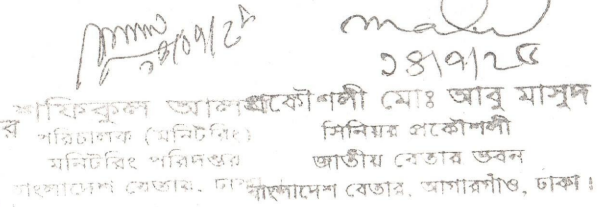 ২৪/০৭/২৫
২৪/৭/২৫
শফিকুল আলম
পরিচালক (মনিটরিং)
মনিটরিং পরিদপ্তর
বাংলাদেশ বেতার, ঢাকা
প্রকৌশলী মোঃ আবু মাসুদ
সিনিয়র প্রকৌশলী
জাতীয় বেতার ভবন
বাংলাদেশ বেতার, আগারগাঁও, ঢাকা।